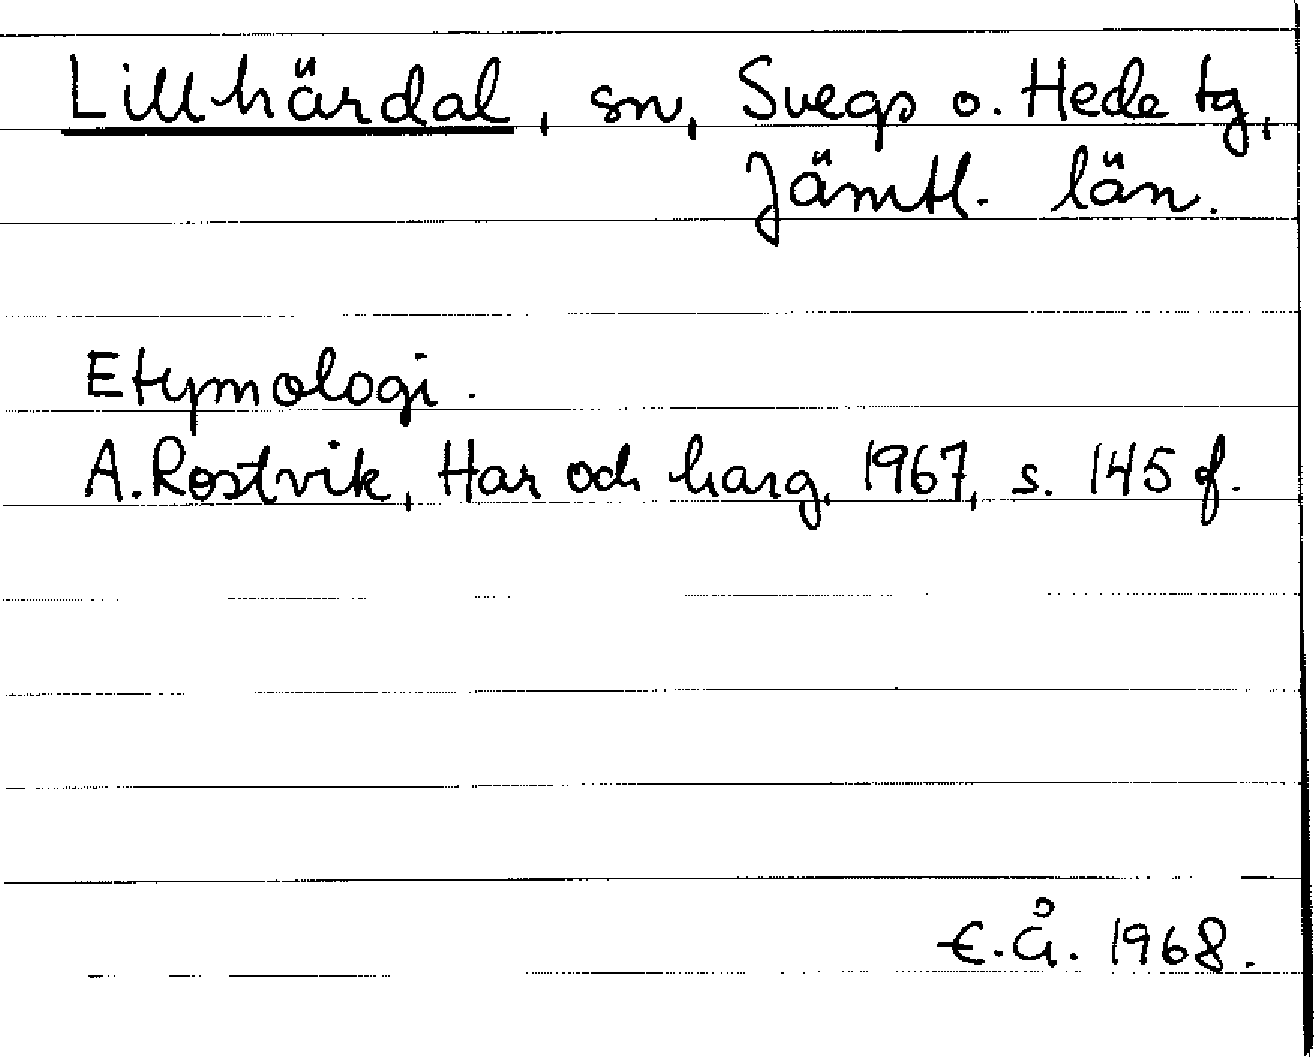 Lillhärdal, sn, Svegs o. Hede tg,
Jämtl. län.
Etymologi.
A. Rostvik, Har och harg, 1967, s. 145 f.
E.Å. 1968.